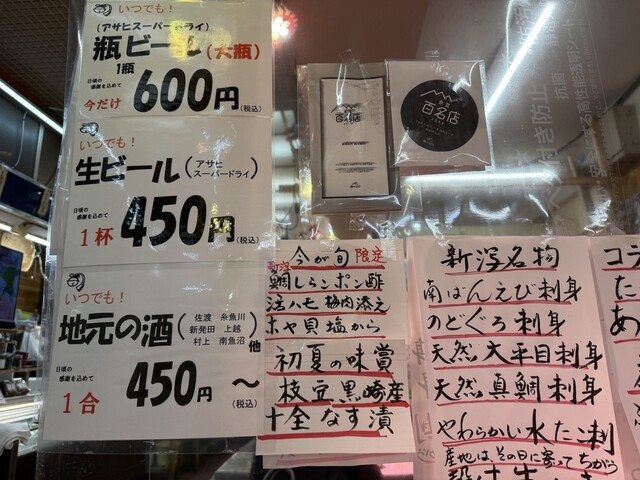 いつでも！
(アサヒスーパードライ)
瓶ビール(大瓶)
1瓶
日頃の
感謝を込めて
今だけ
600円
(税込)
いつでも！
生ビール(アサヒ
スーパードライ)
日頃の
感謝を込めて
1杯
450円
(税込)
いつでも！
地元の酒(佐渡 糸魚川
新発田 上越
村上 南魚沼)他
日頃の
感謝を込めて
1合
450円～
(税込)
百名店
百名店
今が旬 限定
鯛しらこポン酢
活ハモ 梅肉添え
ホヤ貝塩から
初夏の味賞
枝豆 黒崎産
十全なす漬
新潟名物
南ばんえび刺身
のどぐろ刺身
天然大平目刺身
天然真鯛刺身
やわらかい水たこ刺
産地は、その日に寄ってちがう
コラ
た
あ